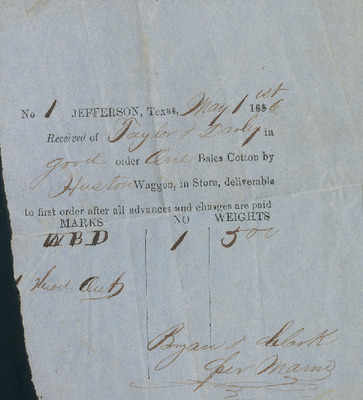 No 1 JEFFERSON, Texas, May 1st 1856
Received of Taylor & Darby in
good order One Bales Cotton by
Huston Waggon, in Store, deliverable
to first order after all advances and charges are paid
MARKS NO WEIGHTS
W B D 1 500
1 Out
Bryan & Clark
per